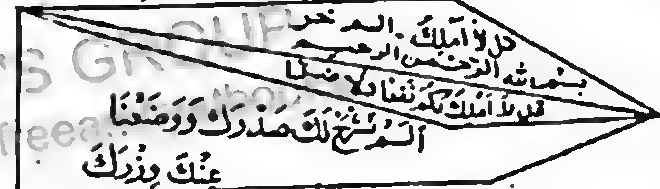 قل لا أملك الم نحر
بسم الله الرحمن الرحيم
قل لا املك لكم نفعا ولا ضلنا
ألم نشرح لك صدرك ووضعنا
عنك وزرك
TS GROUP
free